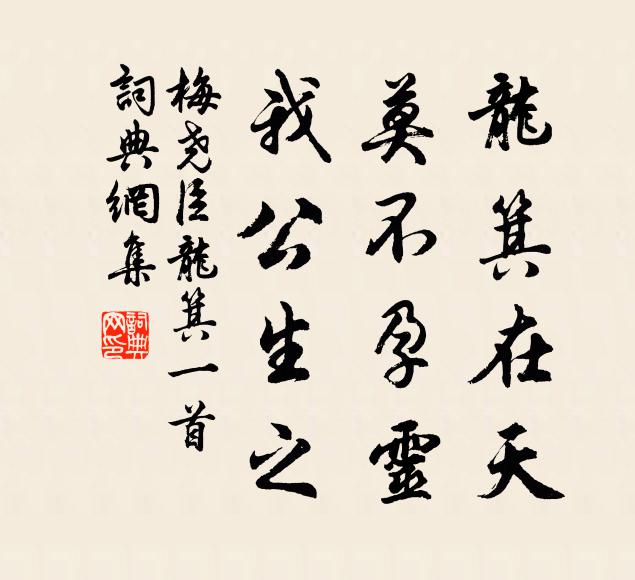 龍箕在天
莫不孕靈
我公生之
梅尧臣龍箕一首
詞典網集
詞典
网印